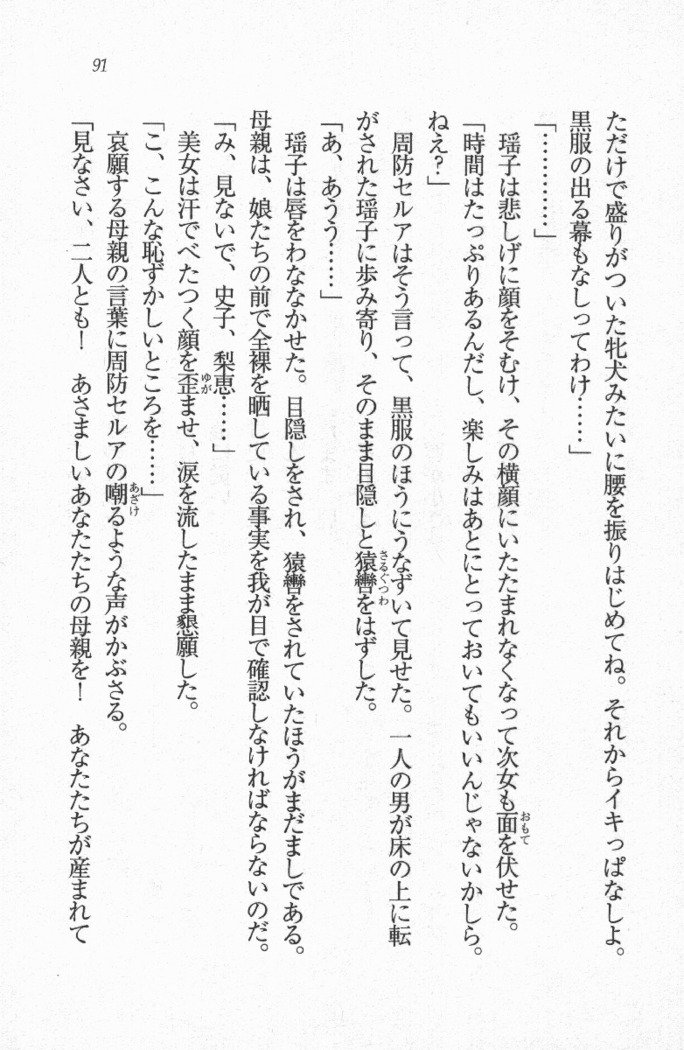 91
ただけで盛りがついた牝犬みたいに腰を振りはじめてね。それからイキっぱなしよ。
黒服の出る幕もなしってわけ……」
「…………」
瑶子は悲しげに顔をそむけ、その横顔にいたたまれなくなって次女も面を伏せた。
「時間はたっぷりあるんだし、楽しみはあとにとっておいてもいいんじゃないかしら。
ねえ？」
周防セルアはそう言って、黒服のほうにうなずいて見せた。一人の男が床の上に転
がされた瑶子に歩み寄り、そのまま目隠しと猿轡をはずした。
「あ、あうう……」
瑶子は唇をわななかせた。目隠しをされ、猿轡をされていたほうがまだましである。
母親は、娘たちの前で全裸を晒している事実を我が目で確認しなければならないのだ。
「み、見ないで、史子、梨恵……」
美女は汗でべたつく顔を歪ませ、涙を流したまま懇願した。
「こ、こんな恥ずかしいところを……」
哀願する母親の言葉に周防セルアの嘲るような声がかぶさる。
「見なさい、二人とも！　あさましいあなたたちの母親を！　あなたたちが産まれて